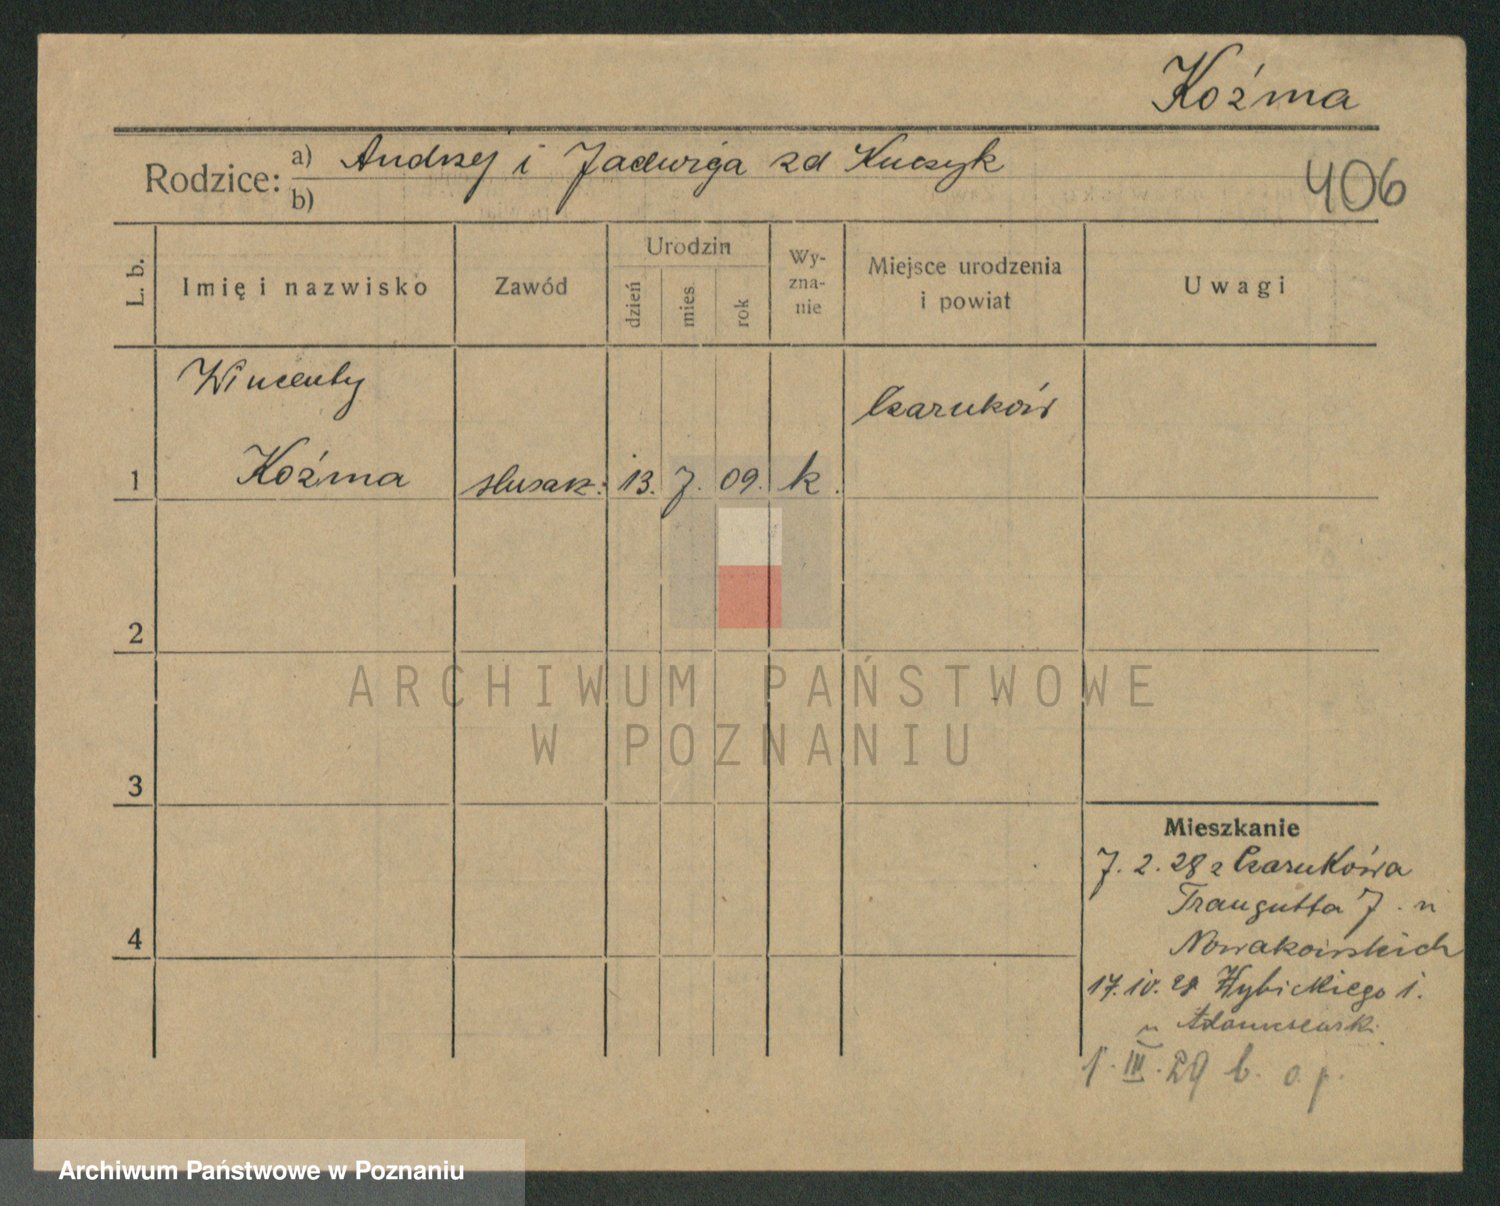 Koźma
Rodzice: a) Andrzej i Jadwiga zd Kuczyk
b)
406
L. b.
Imię i nazwisko
Zawód
Urodzin
dzień
mies
rok
Wy-
zna-
nie
Miejsce urodzenia
i powiat
Uwagi
Wincenty
Czarnków
1 Koźma ślusarz. 13. 7. 09. k.
2
ARCHIWUM PAŃSTWOWE
W POZNANIU
3
Mieszkanie
7. 2. 28 z Czarnkowa
Traugutta 7. u
4
Nowakowskich
17. IV. 28 Wybickiego 1.
u
1. III. 29 b. o. p.
Archiwum Państwowe w Poznaniu